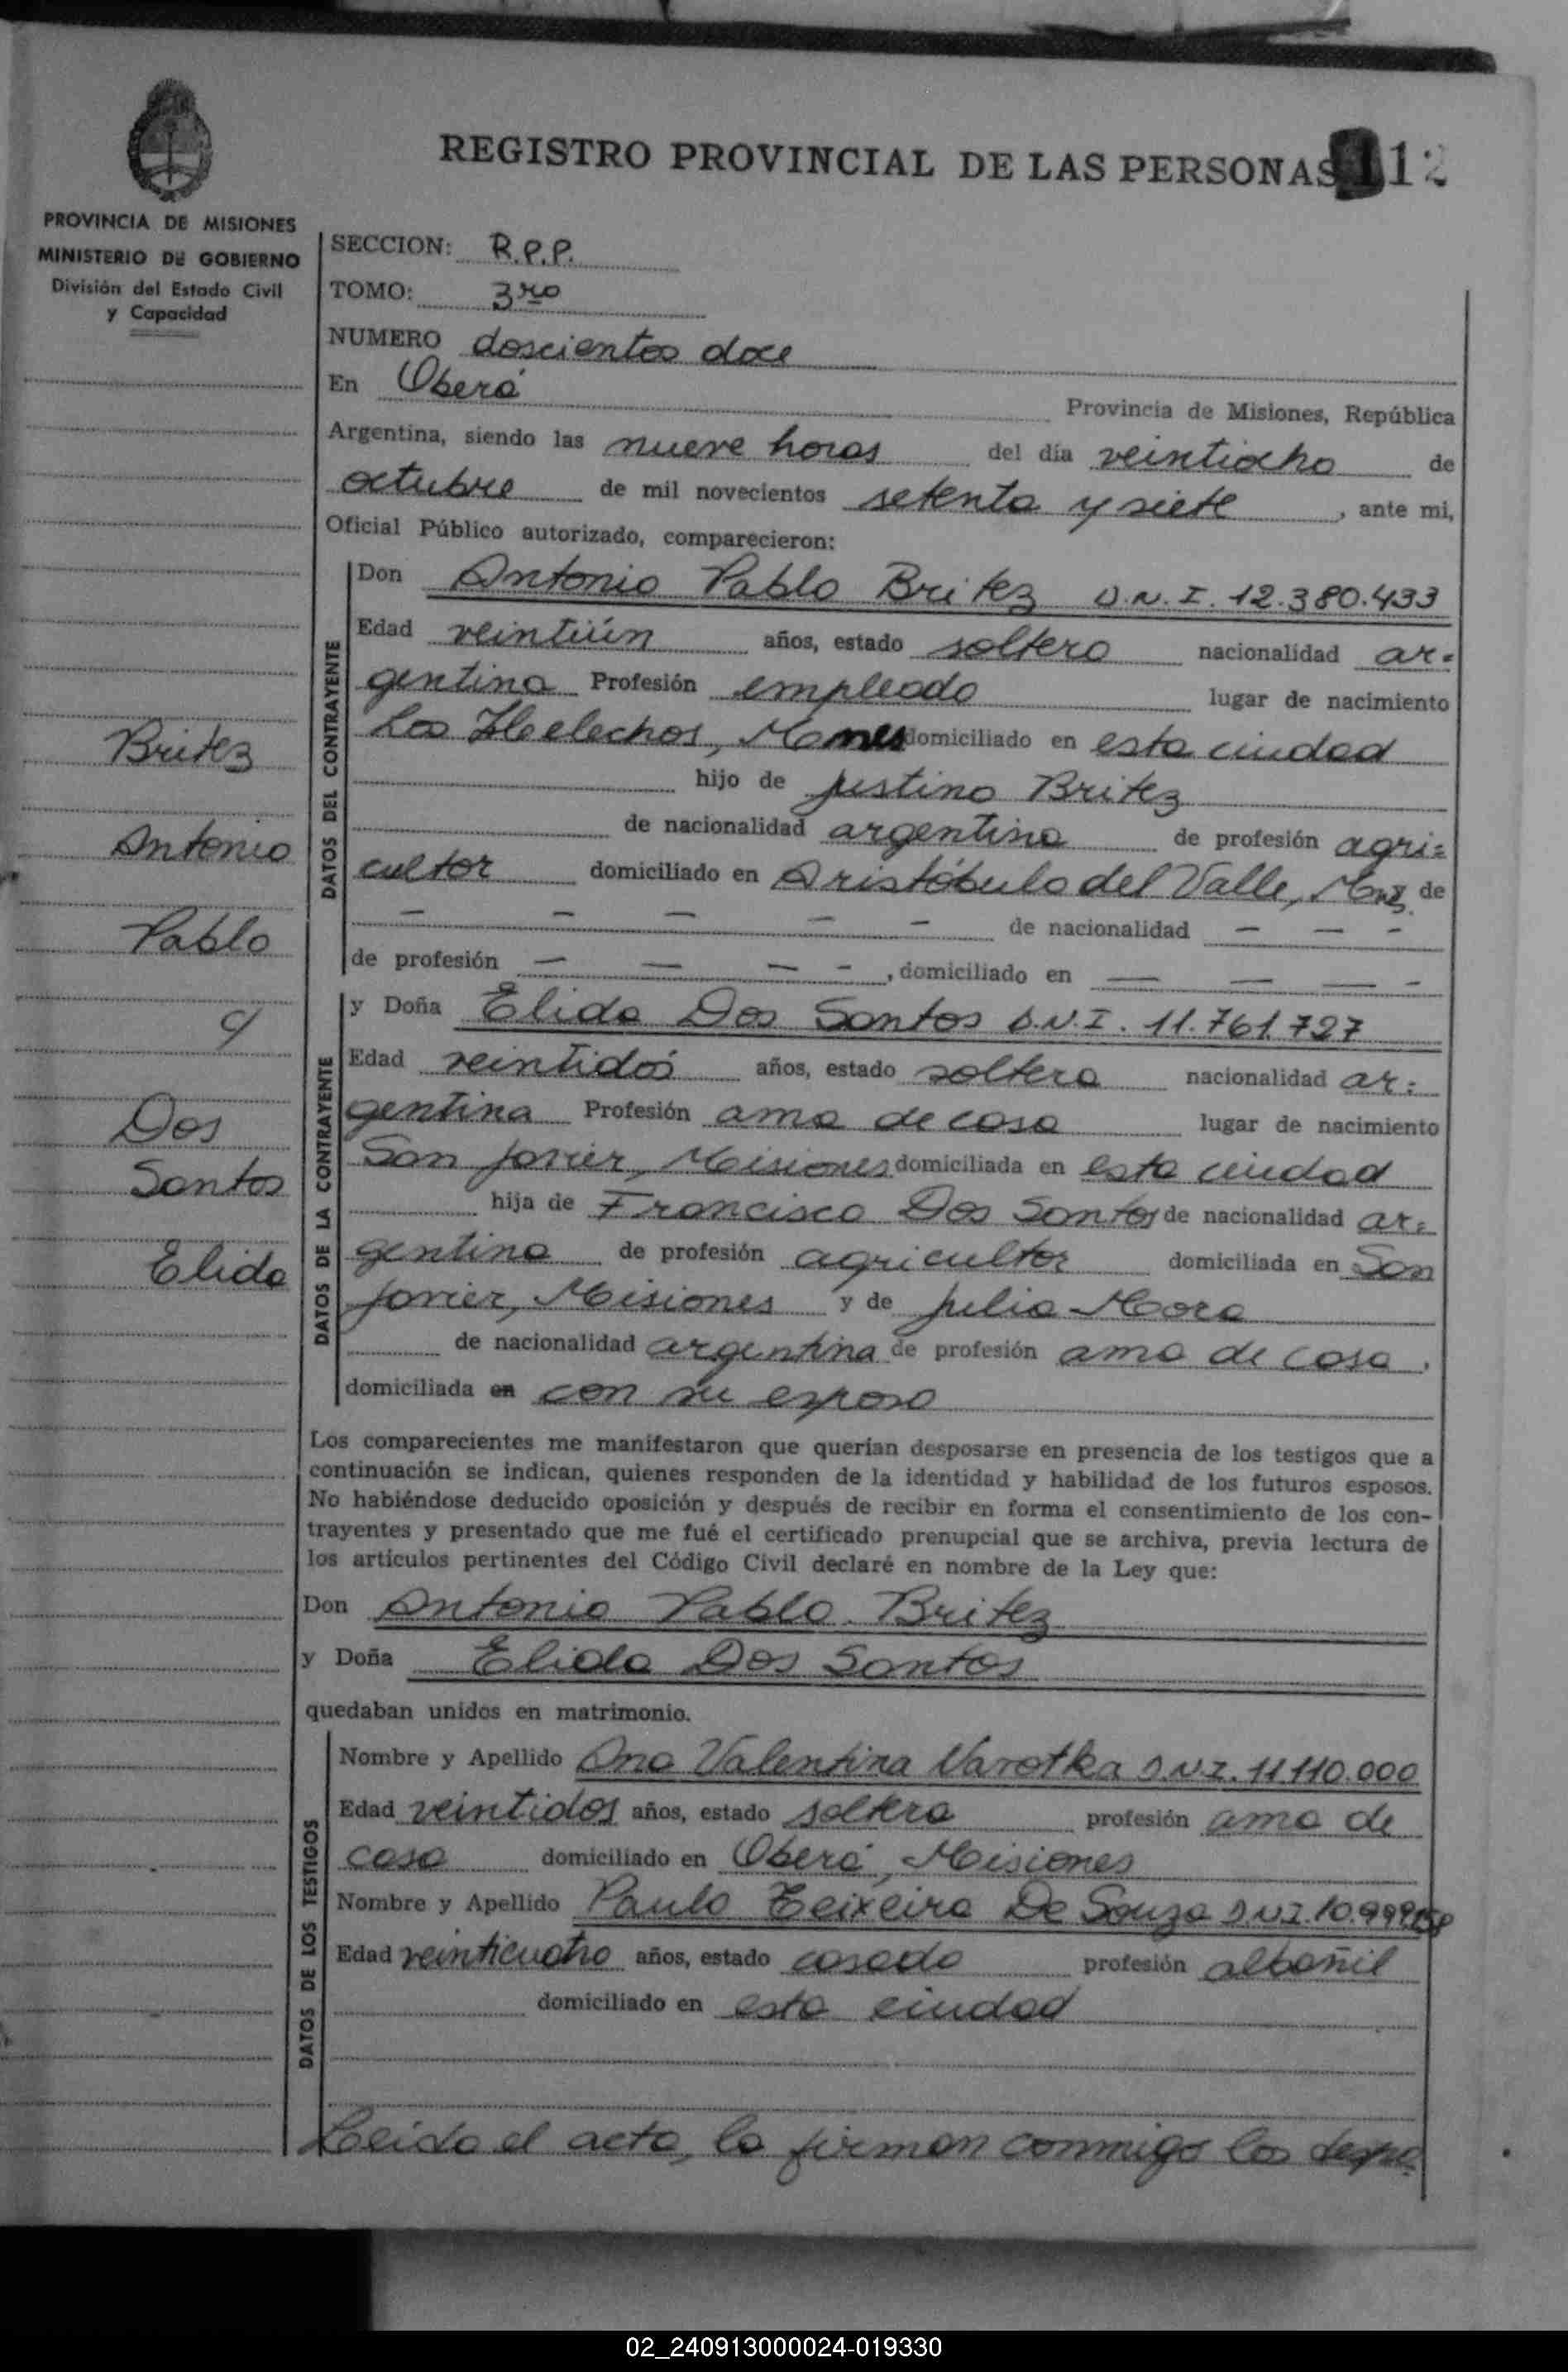 REGISTRO PROVINCIAL DE LAS PERSONAS 112
PROVINCIA DE MISIONES
MINISTERIO DE GOBIERNO
División del Estado Civil
y Capacidad
SECCION: R.P.P.
TOMO: 3ro
NUMERO doscientos doce
En Oberá Provincia de Misiones, República
Argentina, siendo las nueve horas del día veintiocho de
octubre de mil novecientos setenta y siete, ante mi,
Oficial Público autorizado, comparecieron:
DATOS DEL CONTRAYENTE
Don Antonio Pablo Britez D.N.I. 12.380.433
Edad veintiún años, estado soltero nacionalidad ar=
gentina Profesión empleado lugar de nacimiento
Los Helechos, Mnes domiciliado en esta ciudad
hijo de Justino Britez
de nacionalidad argentina de profesión agri=
cultor domiciliado en Aristóbulo del Valle, Mnes y de
— — — — — de nacionalidad — — —
de profesión — — — —, domiciliado en — — — —
DATOS DE LA CONTRAYENTE
y Doña Elida Dos Santos D.N.I. 11.761.727
Edad veintidós años, estado soltera nacionalidad ar=
gentina Profesión ama de casa lugar de nacimiento
San Javier, Misiones domiciliada en esta ciudad
hija de Francisco Dos Santos de nacionalidad ar=
gentina de profesión agricultor domiciliada en San
Javier, Misiones y de Julia Mora
de nacionalidad argentina de profesión ama de casa,
domiciliada en con su esposo
Los comparecientes me manifestaron que querían desposarse en presencia de los testigos que a
continuación se indican, quienes responden de la identidad y habilidad de los futuros esposos.
No habiéndose deducido oposición y después de recibir en forma el consentimiento de los con-
trayentes y presentado que me fué el certificado prenupcial que se archiva, previa lectura de
los artículos pertinentes del Código Civil declaré en nombre de la Ley que:
Don Antonio Pablo Britez
y Doña Elida Dos Santos
quedaban unidos en matrimonio.
DATOS DE LOS TESTIGOS
Nombre y Apellido Ana Valentina Warotka D.N.I. 11.110.000
Edad veintidos años, estado soltera profesión ama de
casa domiciliado en Oberá, Misiones
Nombre y Apellido Paulo Teixeira De Souza D.N.I.
Edad veinticuatro años, estado casado profesión albañil
domiciliado en esta ciudad
Leída el acta, la firman conmigo los
Britez
Antonio
Pablo
c/
Dos
Santos
Elida
02_240913000024-019330